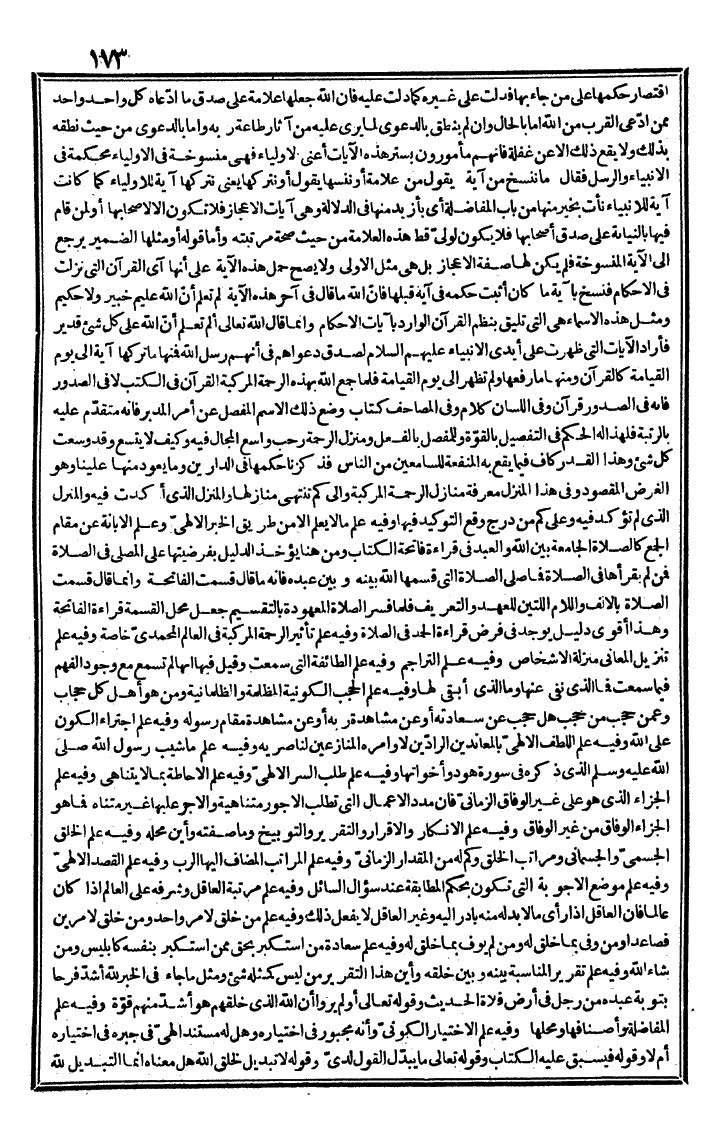 ١٧٣
اقتصار حكمها على من جاء بها فدلت على غيره كما دلت عليه فان الله جعلها علامة على صدق ما ادّعاه كل واحد واحد
ممن ادّعى القرب من الله اما بالحال وان لم ينطق بالدعوى لما يرى عليه من آثار طاعة ربه واما بالدعوى من حيث نطقه
بذلك ولا يقع ذلك الا عن غفلة فانهم مأمورون بستر هذه الآيات أعنى الاولياء فهى منسوخة فى الاولياء محكمة فى
الانبياء والرسل فقال ما ننسخ من آية يقول من علامة أو ننسها يقول أو نتركها يعنى نتركها آية للاولياء كما كانت
آية للانبياء نأت بخير منها من باب المفاضلة أى بأزيد منها فى الدلالة وهى آيات الاعجاز فلا تكون الا لاصحابها أو لمن قام
فيها بالنيابة على صدق أصحابها فلا يكون لولىّ قط هذه العلامة من حيث صحة مرتبته وأما قوله أو مثلها الضمير يرجع
الى الآية المنسوخة فلم يكن لها صفة الاعجاز بل هى مثل الاولى ولا يصح حمل هذه الآية على أنها آى القرآن التى نزلت
فى الاحكام فنسخ بآية ما كان أثبت حكمه فى آية قبلها فانّ الله ما قال فى آخر هذه الآية ألم تعلم أنّ الله عليم خبير ولا حكيم
ومثل هذه الاسماء هى التى تليق بنظم القرآن الوارد بآيات الاحكام وانما قال الله تعالى ألم تعلم أنّ الله على كل شئ قدير
فأراد الآيات التى ظهرت على أيدى الانبياء عليهم السلام لصدق دعواهم فى أنهم رسل الله فمنها ما تركها آية الى يوم
القيامة كالقرآن ومنها ما رفعها ولم تظهر الى يوم القيامة فلما جع الله بهذه الرحمة المركبة القرآن فى الكتب لا فى الصدور
فانه فى الصدور قرآن وفى اللسان كلام وفى المصاحف كتاب وضع ذلك الاسم المفصل عن أمر المدبر فانه متقدّم عليه
بالرتبة فلهذا له الحكم فى التفصيل بالقوّة وللمفصل بالفعل ومنزل الرحمة رحب واسع المجال فيه وكيف لا يتسع وقد وسعت
كل شئ وهذا القدر كاف فيما يقع به المنفعة للسامعين من الناس فذكرنا حكمها فى الدارين وما يعود منها علينا وهو
الغرض المقصود وفى هذا المنزل معرفة منازل الرحمة المركبة والى كم تنتهى منازلها والمنزل الذى أكدت فيه والمنزل
الذى لم تؤكد فيه وعلى كم من درج وقع التوكيد فيها وفيه علم ما لا يعلم الا من طريق الخبر الالهىّ وعلم الابانة عن مقام
الجع كالصلاة الجامعة بين الله والعبد فى قراءة فاتحة الكتاب ومن هنا يؤخذ الدليل بفرضيتها على المصلى فى الصلاة
فمن لم يقرأها فى الصلاة فما صلى الصلاة التى قسمها الله بينه وبين عبده فانه ما قال قسمت الفاتحة وانما قال قسمت
الصلاة بالالف واللام اللتين للعهد والتعريف فلما فسر الصلاة المعهودة بالتقسيم جعل محل القسمة قراءة الفاتحة
وهذا أقوى دليل يوجد فى فرض قراءة الحد فى الصلاة وفيه علم تأثير الرحمة المركبة فى العالم المحمدىّ خاصة وفيه علم
تنزيل المعانى منزلة الاشخاص وفيه علم التراجم وفيه علم الطائفة التى سمعت وقيل فيها انها لم تسمع مع وجود الفهم
فيما سمعت فما الذى نفى عنها وما الذى أبقى لها وفيه علم الحجب الكونية المظلمة والظلمانية ومن هو أهل كل حجاب
وعمن حجب من حجب هل حجب عن سعادته أو عن مشاهدة ربه أو عن مشاهدة مقام رسوله وفيه علم اجتراء الكون
على الله وفيه علم اللطف الالهىّ بالمعاندين الرادّين لاوامره المنازعين لناصر به وفيه علم ما شيب رسول الله صلى
الله عليه وسلم الذى ذكره فى سورة هود وأخواتها وفيه علم طلب السر الالهىّ وفيه علم الاحاطة بما لا يتناهى وفيه علم
الجزاء الذى هو على غير الوفاق الزمانىّ فان مدد الاعمال التى تطلب الاجور متناهية والاجر عليها غير متناه فما هو
الجزاء الوفاق من غير الوفاق وفيه علم الانكار والاقرار والتقرير والتوبيخ وما صفته وأين محله وفيه علم الخلق
الجسمىّ والجسمانى ومراتب الخلق وكم له من المقدار الزمانىّ وفيه علم المراتب المضاف اليها الرب وفيه علم القصد الالهىّ
وفيه علم موضع الاجوبة التى تكون بحكم المطابقة عند سؤال السائل وفيه علم مرتبة العاقل وشرفه على العالم اذا كان
عالما فان العاقل اذا رأى ما لابد له منه بادر اليه وغير العاقل لا يفعل ذلك وفيه علم من خلق لامر واحد ومن خلق لامرين
فصاعدا ومن وفى بما خلق له ومن لم يوف بما خلق له وفيه علم سعادة من استكبر بحق ممن استكبر بنفسه كابليس ومن
شاء الله وفيه علم تقرير المناسبة بينه وبين خلقه وأين هذا التقرير من ليس كمثله شئ ومثل ما جاء فى الخبر لله أشدّ فرحا
بتوبة عبده من رجل فى أرض فلاة الحديث وقوله تعالى أولم يروا أن الله الذى خلقهم هو أشدّ منهم قوّة وفيه علم
المفاضلة وأصنافها ومحلها وفيه علم الاختيار الكونىّ وأنه مجبور فى اختياره وهل له مستند الهىّ فى جبره فى اختياره
أم لا وقوله فيسبق عليه الكتاب وقوله تعالى ما يبدّل القول لدىّ وقوله لا تبديل لخلق الله هل معناه انما التبديل لله